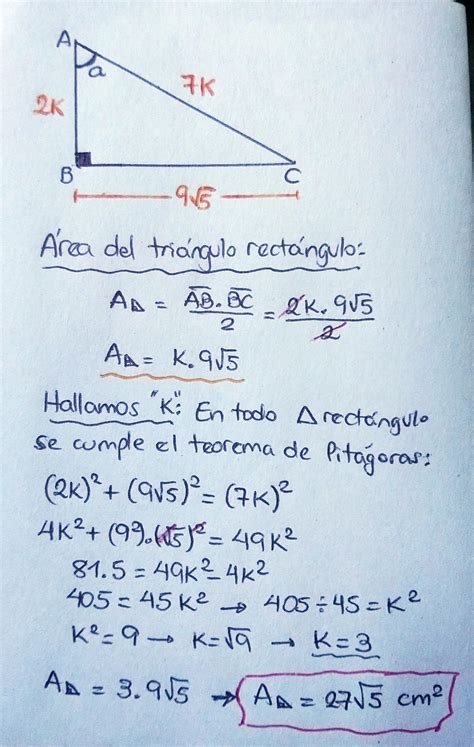 A
a
7K
2K
B
C
9√5
Área del triángulo rectángulo:
A◺ = AB.BC/2 = 2K.9√5/2
A◺ = K.9√5
Hallamos "K": En todo △ rectángulo
se cumple el teorema de Pitágoras:
(2K)²+(9√5)²=(7K)²
4K²+(9²).(√5)²=49K²
81.5=49K²-4K²
405=45K² → 405÷45=K²
K²=9 → K=√9 → K=3
A◺ = 3.9√5 → A◺ = 27√5 cm²